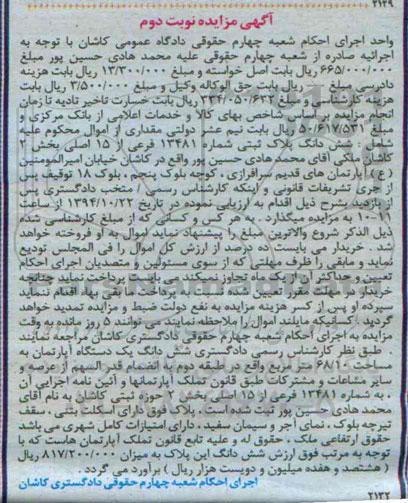 ۲۱۲۹
آگهی مزایده نوبت دوم
واحد اجرای احکام شعبه چهارم حقوقی دادگاه عمومی کاشان با توجه به
اجرائیه صادره از شعبه چهارم حقوقی علیه محمد هادی حسین پور مبلغ
۶۶۵/۰۰۰/۰۰۰ ریال بابت اصل خواسته و مبلغ ۱۳/۳۰۰/۰۰۰ ریال بابت هزینه
دادرسی مبلغ --- ریال بابت حق الوکاله وکیل و مبلغ ۳/۵۰۰/۰۰۰ ریال بابت
هزینه کارشناسی و مبلغ ۳۳۴/۰۵۰/۶۳۲ ریال بابت خسارت تاخیر تادیه تا زمان
انجام مزایده بر اساس شاخص بهای کالا و خدمات اعلامی از بانک مرکزی و
مبلغ ۵۰/۶۱۷/۵۳۱ ریال بابت نیم عشر دولتی مقداری از اموال محکوم علیه
شامل : شش دانگ پلاک ثبتی شماره ۱۳۴۸۱ فرعی از ۱۵ اصلی بخش ۲
کاشان ملکی آقای محمد هادی حسین پور واقع در کاشان خیابان امیرالمومنین
( ع ) آپارتمان های قدیم سرافرازی ، کوچه بلوک پنجم ، بلوک ۱۸ توقیف پس
از جری تشریفات قانونی و اینکه کارشناس رسمی / منتخب دادگستری پس
از بازدید بشرح ذیل اقدام به ارزیابی نموده در تاریخ ۱۳۹۴/۱۰/۲۲ از ساعت
۱۰-۱۱ به مزایده میگذارد . هر کس و کسانی که از مبلغ کارشناسی شده
ذیل الذکر شروع والاترین مبلغ را پیشنهاد نماید اموال به او فروخته خواهد
شد . خریدار می بایست ده درصد از ارزش کل اموال را فی المجلس تودیع
نماید و مابقی را ظرف مهلتی که از سوی مسئولین و متصدیان اجرای احکام
تعیین و حداکثر آن از یک ماه تجاوز نمیکند می بایست پرداخت نماید چنانچه
خریدار در مهلت مقرر تعیین شده نسبت به پرداخت مابقی بها، اقدام ننماید
سپرده او پس از کسر هزینه مزایده به نفع دولت ضبط و مزایده تمدید خواهد
گردید . کسانیکه مایلند اموال را ملاحظه نمایند می توانند ۵ روز مانده به وقت
مزایده به اجرای احکام شعبه چهارم حقوقی دادگستری کاشان مراجعه نمایند
. طبق نظر کارشناس رسمی دادگستری شش دانگ یک دستگاه آپارتمان به
مساحت ۶۸/۱۰ متر مربع واقع در طبقه دوم به انضمام قدر السهم از عرصه و
سایر مشاعات و مشترکات طبق قانون تملک آپارتمانها و آئین نامه اجرایی آن
، به شماره ۱۳۴۸۱ فرعی از ۱۵ اصلی بخش ۲ حوزه ثبتی کاشان به نام آقای
محمد هادی حسین پور ثبت شده است . پلاک فوق دارای اسکلت بتنی ، سقف
تیرچه بلوک ، نمای آجر و سیمان سفید . دارای امتیازات کامل شهری می باشد
حقوق ارتفاعی ملک ، حقوق له و علیه تابع قانون تملک آپارتمان هاست که با
توجه به مرتب فوق ارزش شش دانگ این پلاک به میزان ۸۱۷/۲۰۰/۰۰۰ ریال
( هشتصد و هفده میلیون و دویست هزار ریال ) برآورد می گردد .
اجرای احکام شعبه چهارم حقوقی دادگستری کاشان
۲۱۳۲